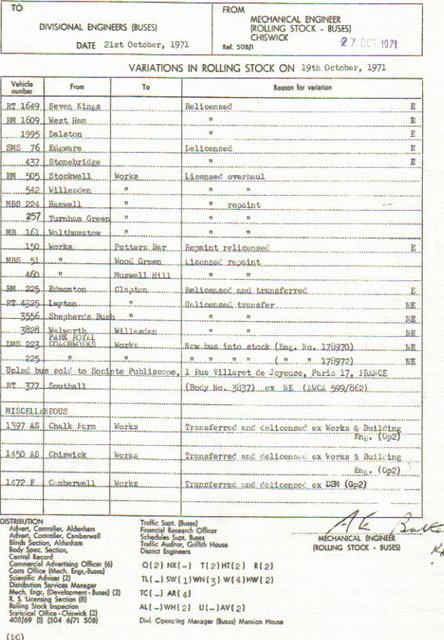 TO
FROM
DIVISIONAL ENGINEERS (BUSES)
MECHANICAL ENGINEER
(ROLLING STOCK - BUSES)
CHISWICK
DATE 21st October, 1971
Ref. 508/1
27 OCT 1971
VARIATIONS IN ROLLING STOCK ON 19th October, 1971
Vehicle number From To Reason for variation
RT 1649 Seven Kings Relicensed E
RM 1609 West Ham " E
1995 Dalston " E
SMS 76 Edgware Delicensed E
437 Stonebridge " E
RM 505 Stockwell Works Licensed overhaul
542 Willesden " " "
MBS 224 Hanwell " " repaint
257 Turnham Green " " "
MB 161 Walthamstow " " "
150 Works Potters Bar Repaint relicensed E
MBS 51 " Wood Green Licensed repaint
460 " Muswell Hill " "
RM 225 Edmonton Clapton Relicensed and transferred E
RT 4325 Leyton " Unlicensed transfer NE
3556 Shepherds Bush " " " NE
3828 Walworth Willesden " " NE
DMS 223 PARK ROYAL COACHWORKS Works New bus into stock (Eng. No. 178970) NE
225 " " " " " " ( " " 178972) NE
Unlsd bus sold to Societe Publiscope, 1 Rue Villaret de Joyeuse, Paris 17, FRANCE
RT 377 Southall (Body No. 3837) ex NE (AMGA 599/862)
MISCELLANEOUS
1397 AS Chalk Farm Works Transferred and delicensed ex Works & Building
Eng. (Gp2)
1450 AS Chiswick Works Transferred and delicensed ex Works & Building
Eng. (Gp2)
1472 F Camberwell Works Transferred and delicensed ex DEM (Gp2)
DISTRIBUTION
Advert. Controller, Aldenham
Advert. Controller, Camberwell
Blinds Section, Aldenham
Body Spec. Section,
Central Record
Commercial Advertising Officer (6)
Costs Office (Mech. Engr.-Buses)
Scientific Adviser (2)
Distribution Services Manager
Mech. Engr. (Development - Buses) (2)
R. S. Licensing Section (8)
Rolling Stock Inspection
Statistical Office - Chiswick (2)
408/69 (1) (504 6/71 508)
(DC)
Traffic Supt. (Buses)
Financial Research Officer
Schedules Supt. Buses
Traffic Auditor, Griffith House
District Engineers
Q(2) NX(-) T(2) HT(2) R(2)
TL(-) SW(1) WN(3) W(4) HW(2)
TC(-) AR(4)
AL(-) WH(2) U(-) AV(2)
Divl. Operating Manager (Buses) Mansion House
MECHANICAL ENGINEER
(ROLLING STOCK - BUSES)